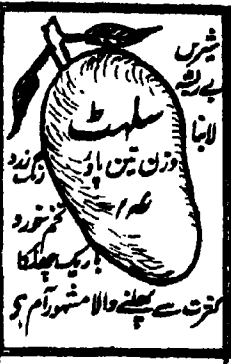 شیریں
بے ریشہ
لانبا
سلہٹ
وزن تین پاؤ
رنگ زرد
عہ/-
تخم خورد
باریک چھلکا
کثرت سے پھلنے والا مشہور آم ہے